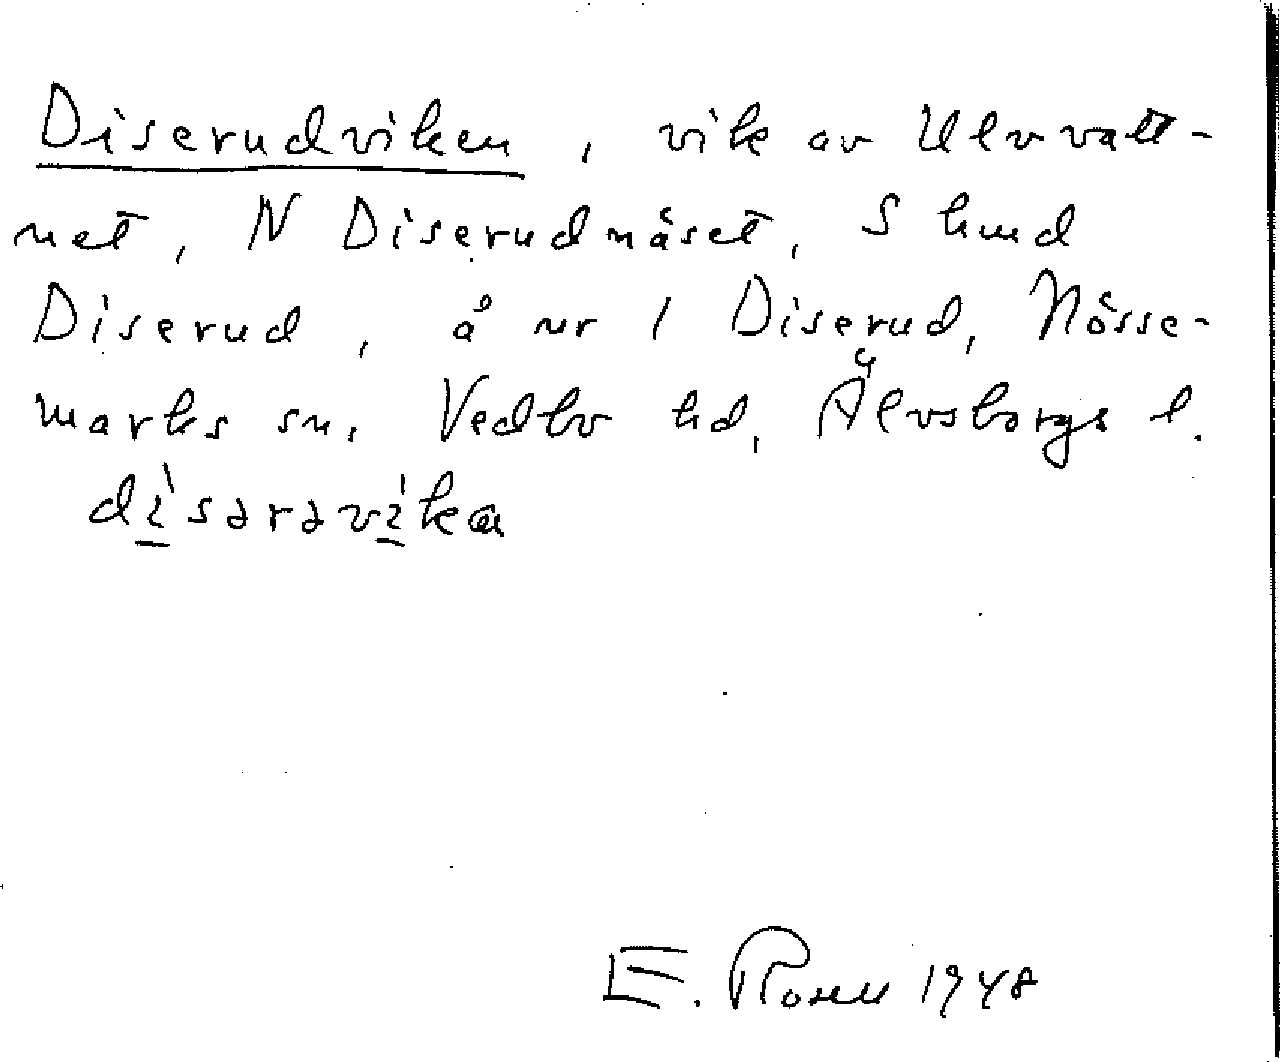 Diserudviken, vik av Ulvvatt-
net, N Diserudnäset, S hmd
Diserud, å nr 1 Diserud, Nösse-
marks sn, Vedbo hd, Älvsborgs l.
di̠̍səravi̠̍ka
E. Rosell 1948